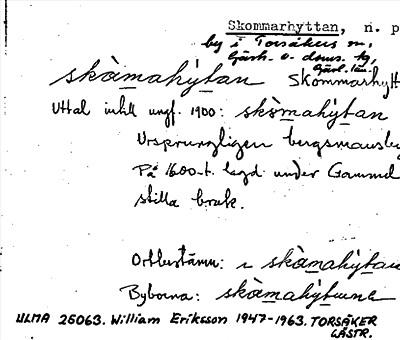 Skommarhyttan, n. p
by i Torsåkers sn,
Gästr. o. doms. hg,
Gävl. län.
skòmahỳtan Skommarhytt
Uttal intill ungf. 1900: skòmahỳtan
Ursprungligen bergsmansby
På 1600-t. lagd under Gammel
stilla bruk.
Ortbestämn: i skòmahỳtan
Byborna: skòmahỳtarna
ULMA 25063. William Eriksson 1947-1963. TORSÅKER
GÄSTR.